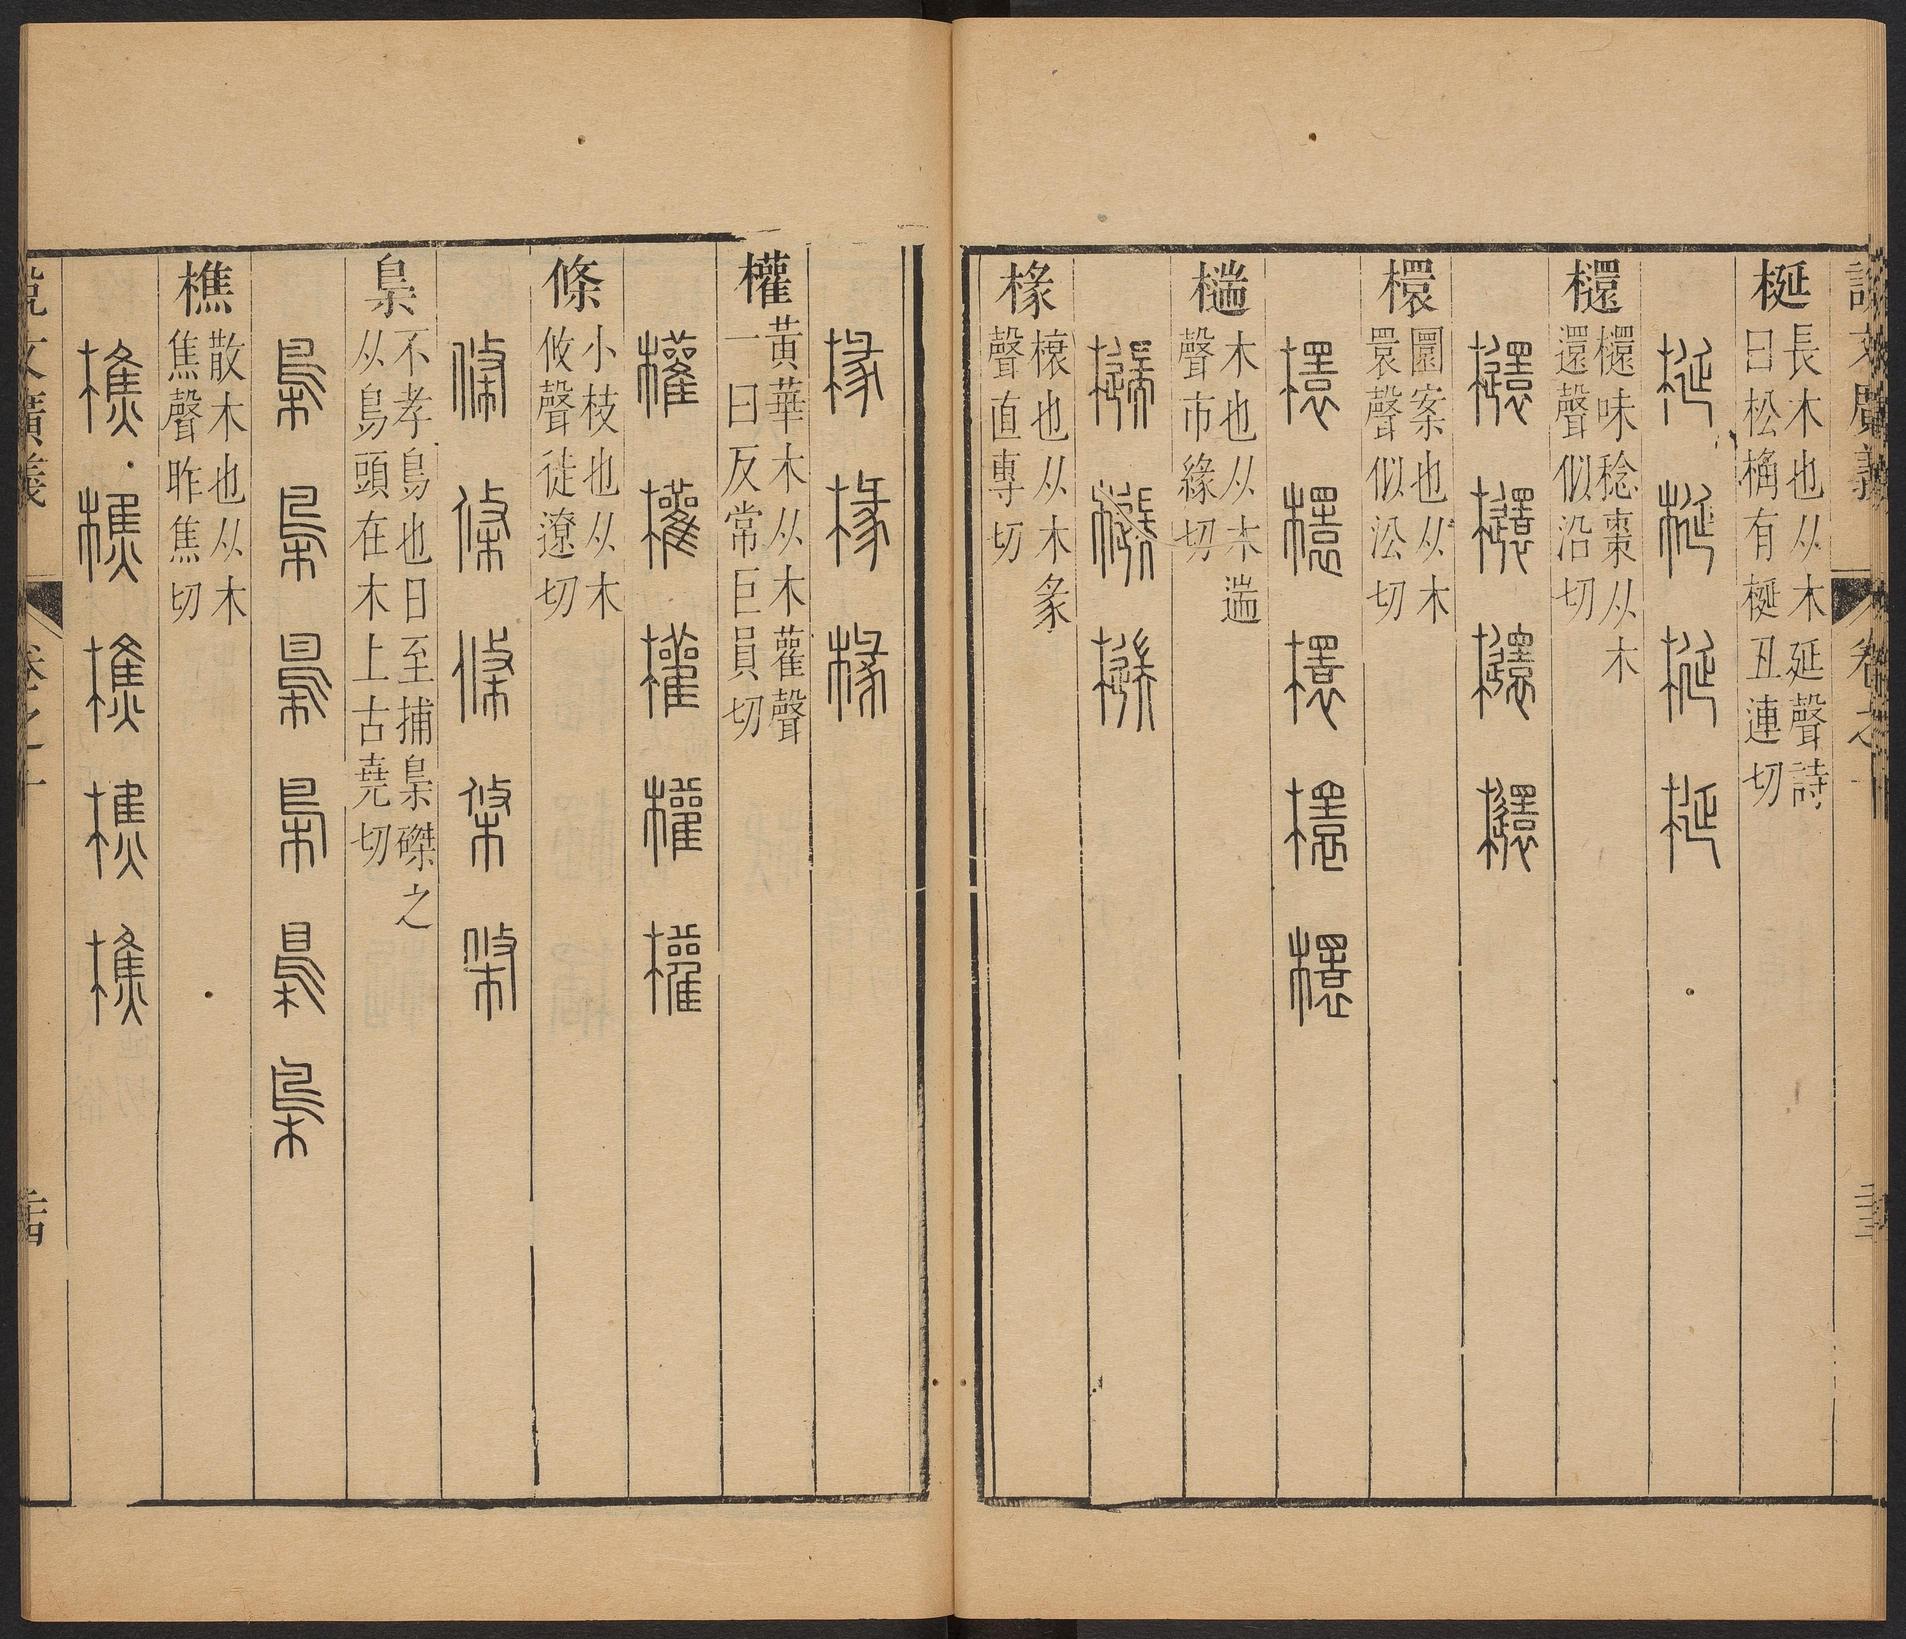 說文廣義 卷之 三十三
梴 長木也从木延聲詩
曰松桷有梴丑連切
梴 梴 梴 梴
檈 檈味稔棗从木
還聲似沿切
檈 圜案也从木
睘聲似沿切
檈 檈 檈 檈 檈
木也从木遄
聲市緣切
椽 榱也从木彖
聲直專切
椽 椽 椽
權 黃華木从木雚聲
一曰反常巨員切
權 權 權 權 權
條 小枝也从木
攸聲徒遼切
條 條 條 條 條
梟 不孝鳥也日至捕梟磔之
从鳥頭在木上古堯切
梟 梟 梟 梟 梟 梟
樵 散木也从木
焦聲昨焦切
樵 樵 樵 樵 樵
說文廣義 卷之 三十四